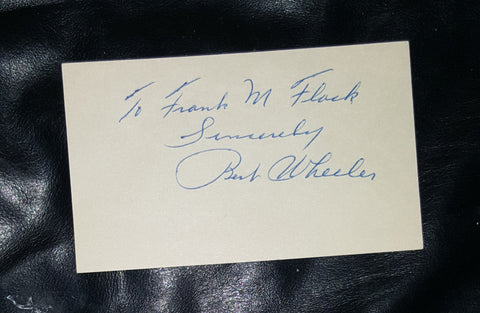 To Frank M Flack
Sincerely
Bert Wheeler